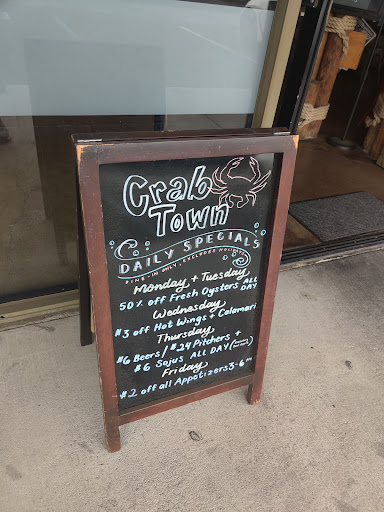 Crab
Town
DAILY SPECIAL'S
DINE-IN ONLY, EXCLUDES HOLIDAYS
Monday + Tuesday
50% off Fresh Oysters ALL DAY
Wednesday
$3 off Hot Wings + Calamari
Thursday
$6 Beers/$24 Pitchers +
$6 Sojus ALL DAY
Friday
$2 off all Appetizers 3-6PM